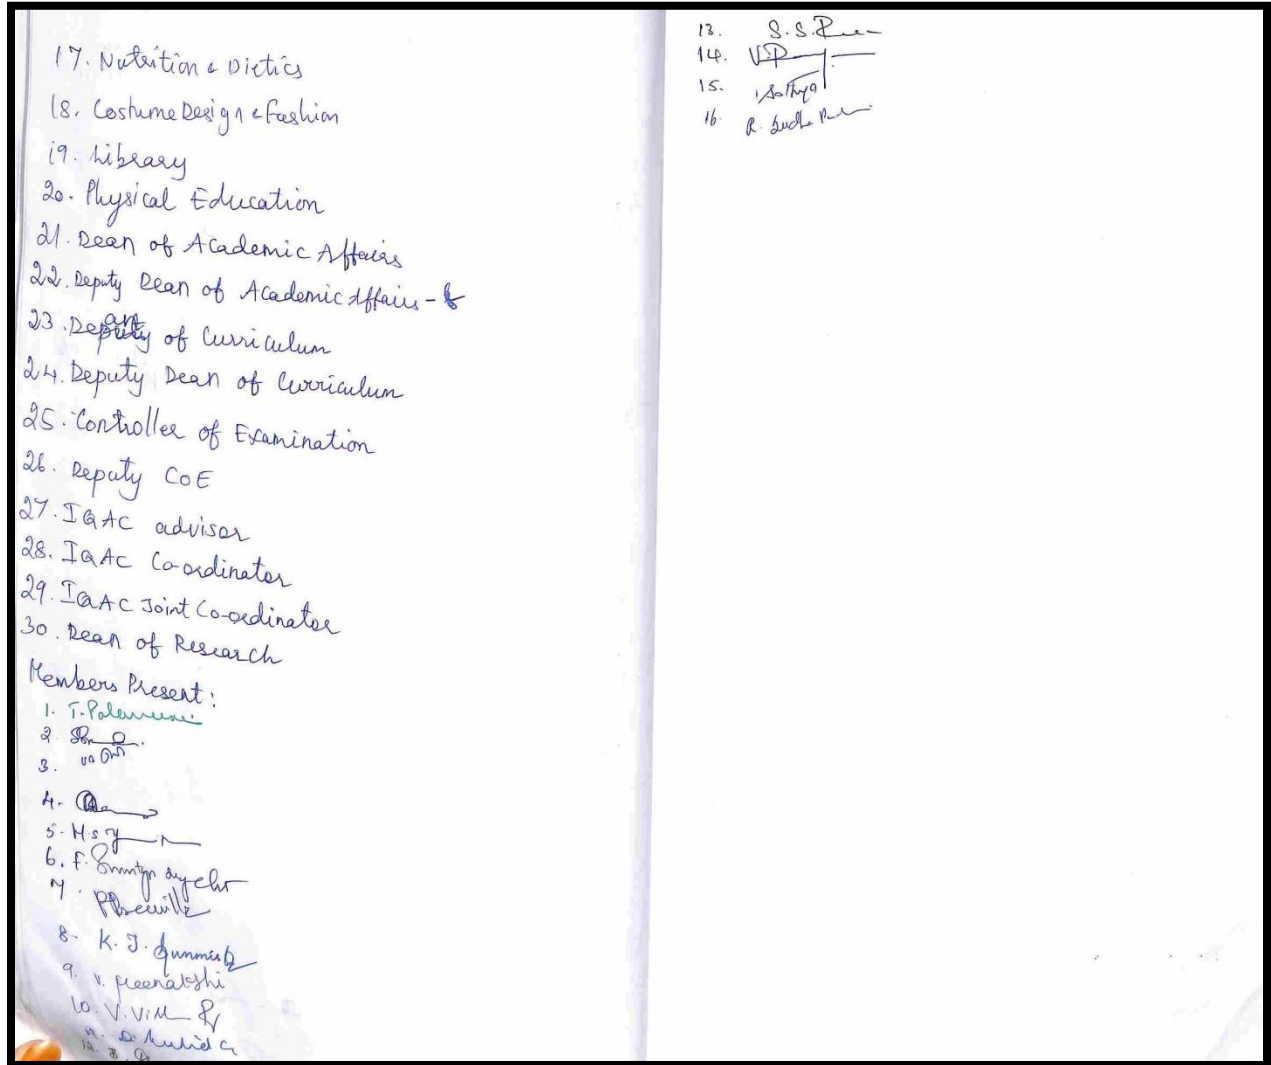 17. Nutrition & Dietics
18. Costume Design & Fashion
19. Library
20. Physical Education
21. Dean of Academic Affairs
22. Deputy Dean of Academic Affairs -
23. Dean of Curriculum
24. Deputy Dean of Curriculum
25. Controller of Examination
26. Deputy CoE
27. IQAC advisor
28. IQAC Co-ordinator
29. IQAC Joint Co-ordinator
30. Dean of Research
Members Present:
1. T.
2.
3.
4.
5. M.S
6. F.
7.
8. K. J.
9. V. Meenakshi
10. V.
11.
12. B.
13. S.S.
14.
15. Sathya
16. R. Sudha